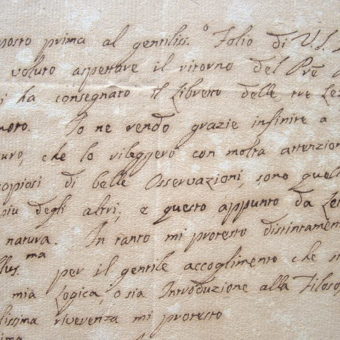 prima al gentiliss.º Folio di V.S.
voluto aspettare il ritorno del Pre
ha consegnato il libretto delle tre
Io ne rendo grazie infinite a
che lo rileggerò con molta attenzion
copiosi di belle Osservazioni, sono quel
più degli altri, e questo appunto da
natura. In tanto mi protesto distintamen
ma per il gentile accoglimento che
mia Logica, o sia Introduzione alla Filosof
lissima riverenza mi protesto